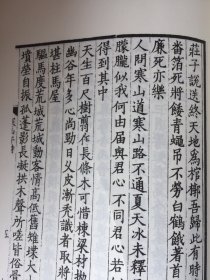 莊子說送終天地為棺槨吾歸此有時
番箔死將餧青蠅弔不勞白鶴餓著首
廉死亦樂
人問寒山道寒山路不通夏天冰未釋
朦朧似我何由屆與君心不同君心若
得到其中
天生百尺樹剪作長條木可惜棟梁材拋
幽谷年多心尚勁日久皮漸禿識者取將
堪柱馬屋
驅馬度荒城荒城動客情高低舊雉堞大小
墳塋自振孤蓬影長凝拱木聲所嗟皆俗骨
五